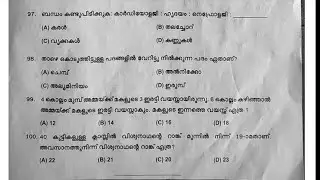 97. ബന്ധം കണ്ടുപിടിക്കുക: കാർഡിയോളജി : ഹൃദയം : നെഫ്രോളജി:
(A) കരൾ (B) തലച്ചോറ്
(C) വൃക്കകൾ (D) കണ്ണുകൾ
98. താഴെ കൊടുത്തിട്ടുള്ള പദങ്ങളിൽ വേറിട്ടു നിൽക്കുന്ന പദം ഏതാണ്?
(A) ചെമ്പ് (B) അൽനിക്കോ
(C) അലുമിനിയം (D) ഇരുമ്പ്
99. 4 കൊല്ലം മുമ്പ് അമ്മയ്ക്ക് മകളുടെ 3 ഇരട്ടി വയസ്സായിരുന്നു. 6 കൊല്ലം കഴിഞ്ഞാൽ
അമ്മയ്ക്ക് മകളുടെ ഇരട്ടി വയസാകും. മകളുടെ ഇന്നത്തെ വയസ്സ് എത്ര ?
(A) 12 (B) 14 (C) 16 (D) 18
100. 40 കുട്ടികളുള്ള ക്ലാസ്സിൽ വിശ്വനാഥന്റെ റാങ്ക് മുന്നിൽ നിന്ന് 19-ാമതാണ്.
അവസാനത്തുനിന്ന് വിശ്വനാഥന്റെ റാങ്ക് എത്ര?
(A) 22 (B) 21 (C) 20 (D) 23